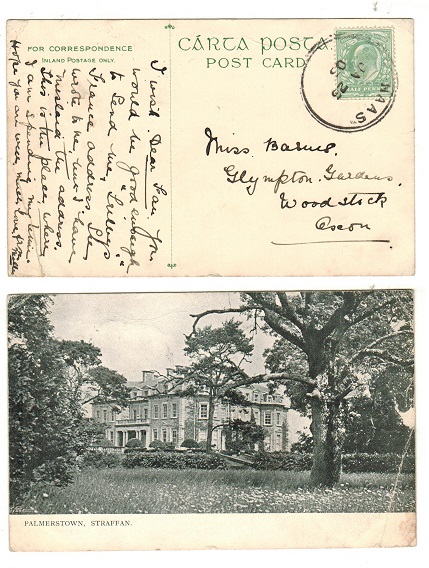 FOR CORRESPONDENCE
INLAND POSTAGE ONLY.
CÁRTA POSTA
POST CARD
NAAS
JA 25
05
HALF PENNY
Miss Barnes
Glympton Gardens,
Woodstock
Oxon
I wish Dear Fan you
would be good enough
to send me, "
France address. She
wrote to me, but I have
mislaid the address,
this is the place, where
I am spending my time
Hope you are well. Much love
PALMERSTOWN, STRAFFAN.